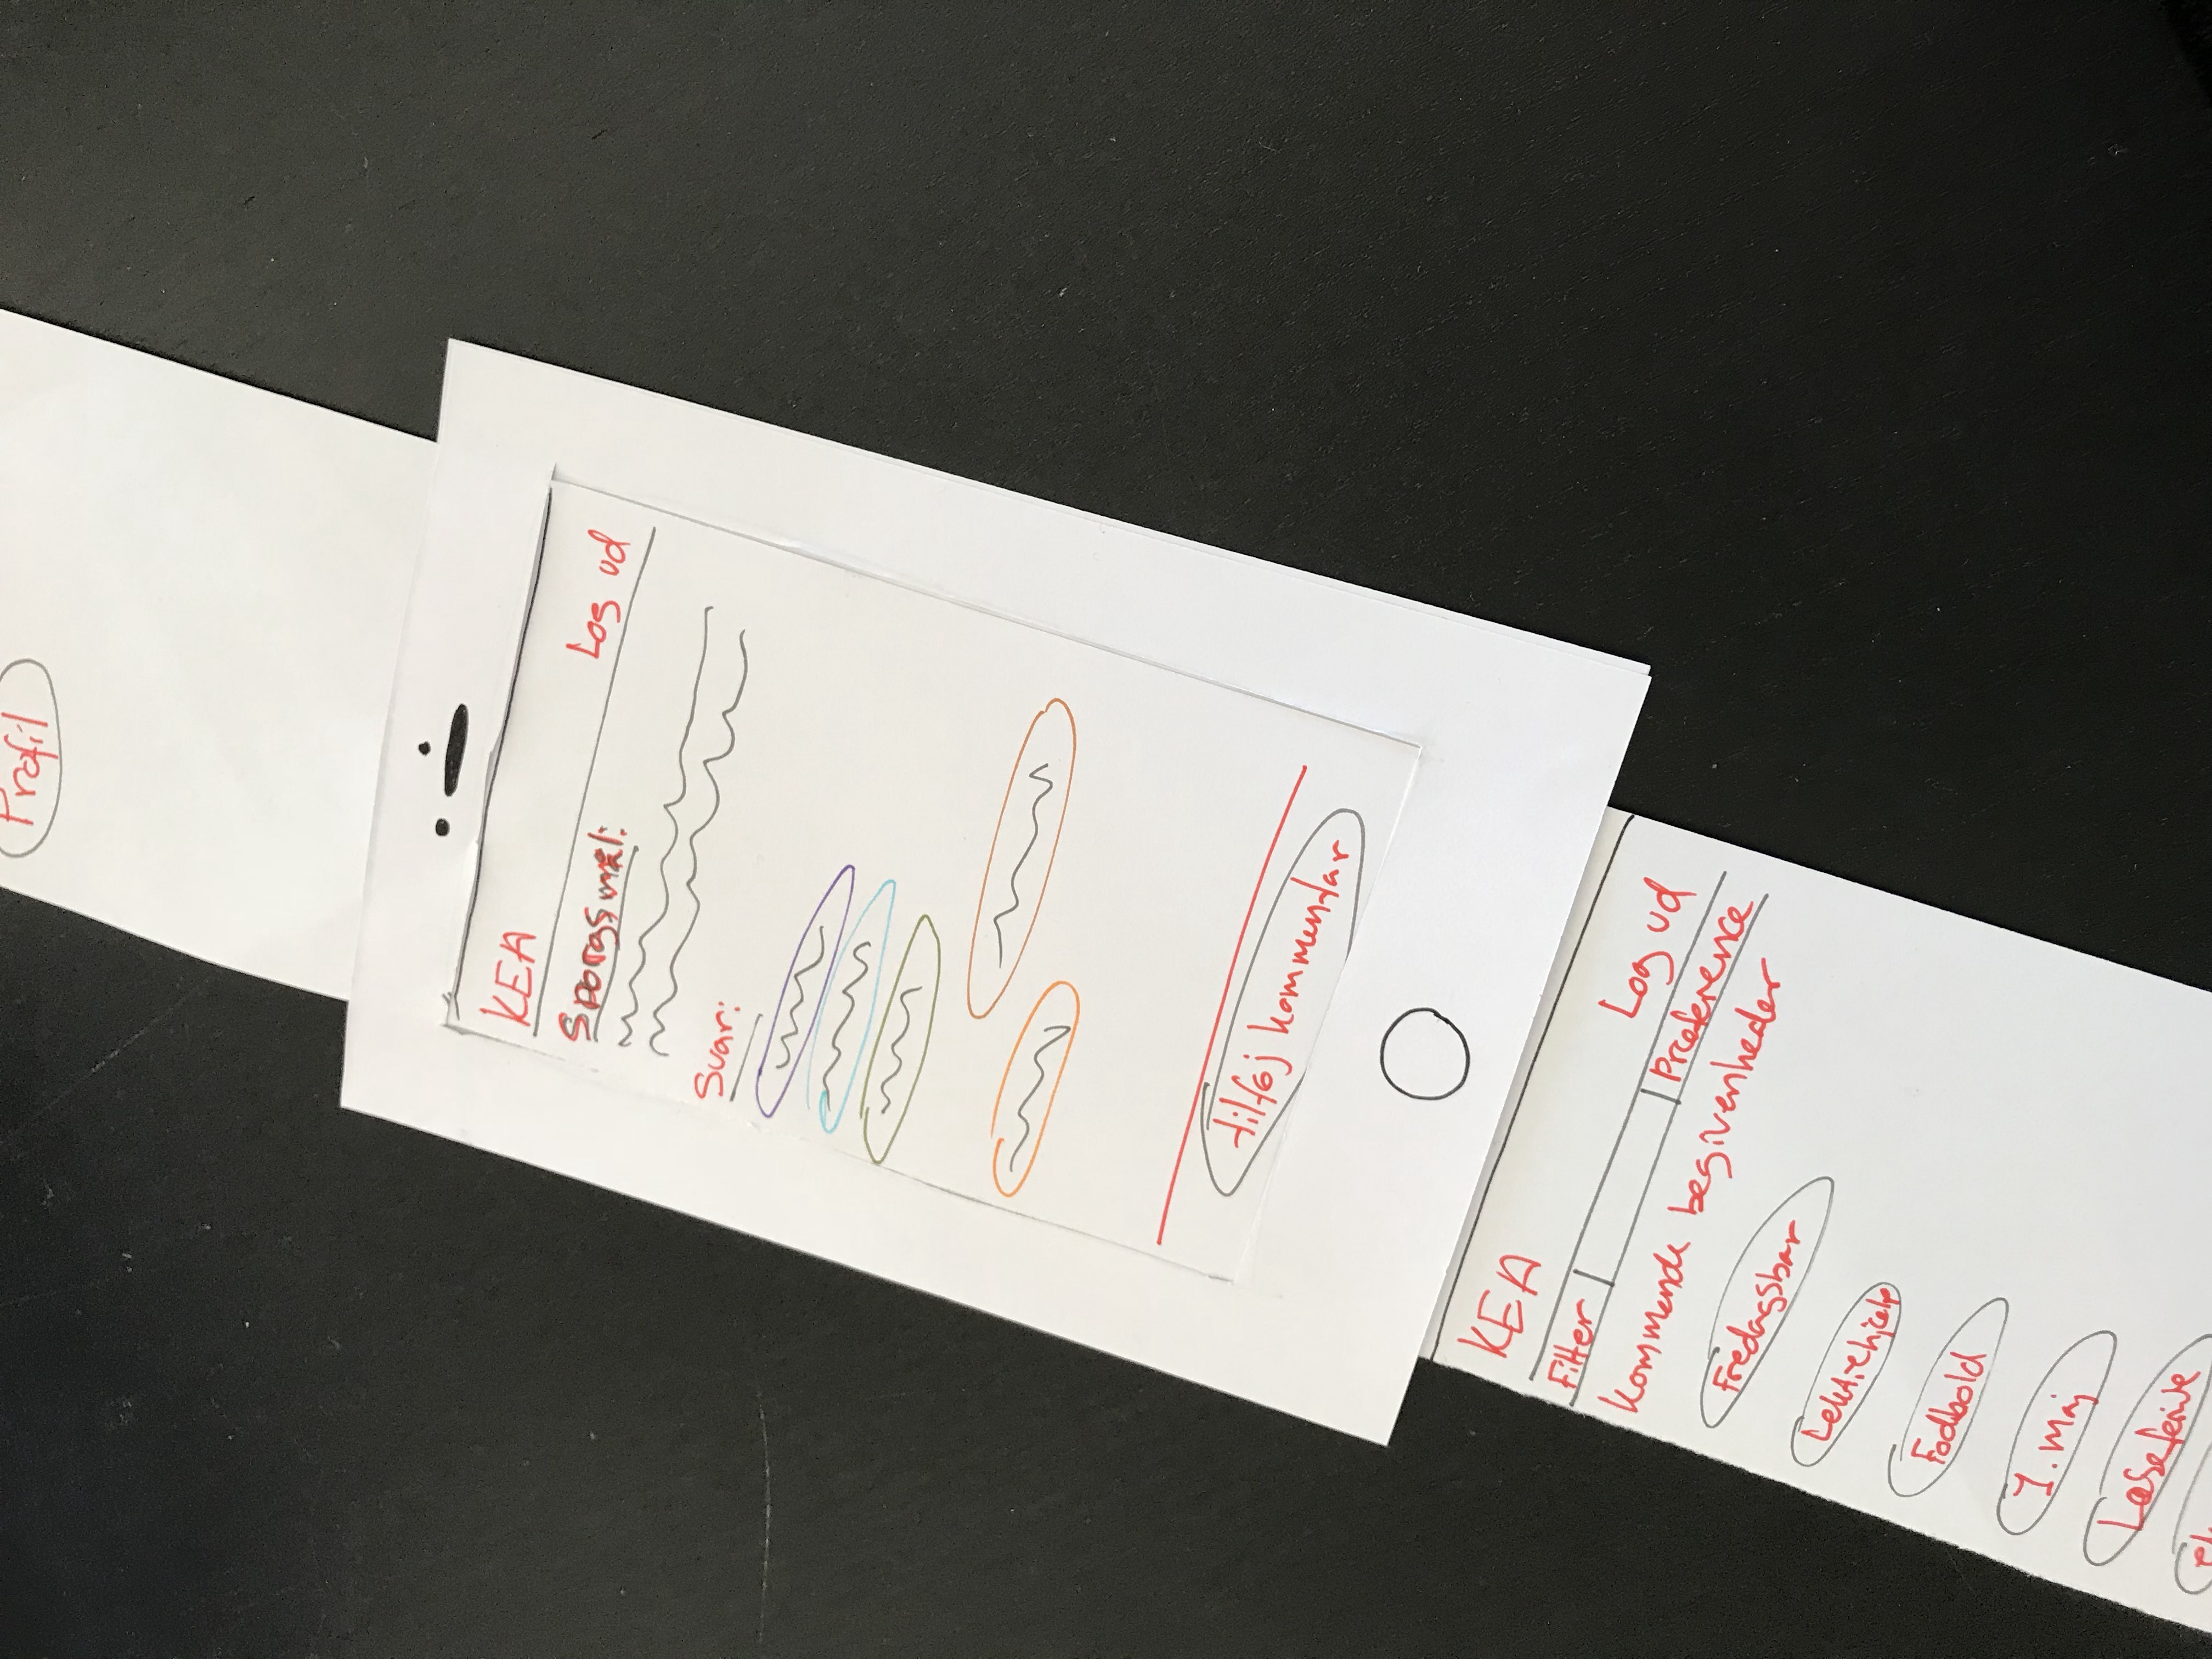 Profil
KEA Log ud
Spørgsmål:
Svar:
tilføj kommentar
KEA Log ud
Filter Præference
Kommende begivenheder
Fredagsbar
Lektiehjælp
Fodbold
1. Maj
Læseferie